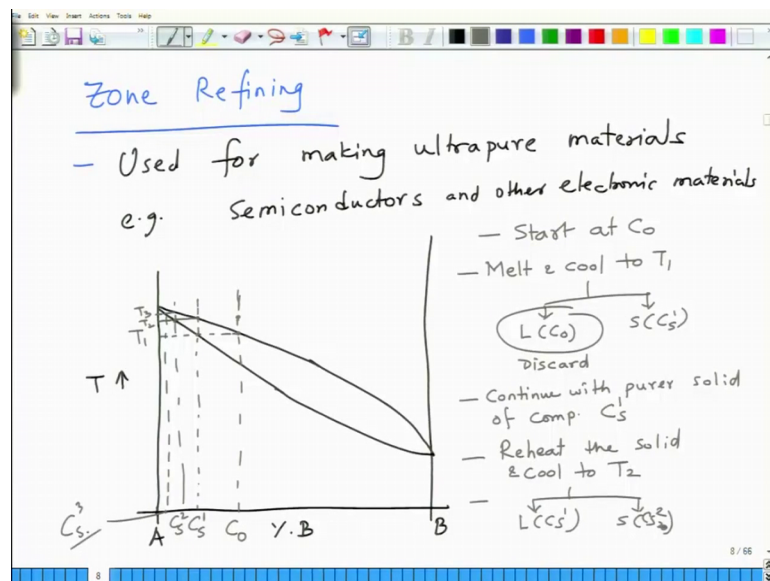 File Edit View Insert Actions Tools Help
B I
Zone Refining
- Used for making ultrapure materials
e.g. Semiconductors and other electronic materials
- Start at C₀
- Melt & cool to T₁
L(C₀) S(Cₛ¹)
Discard
- Continue with purer solid
of comp. Cₛ¹
- Reheat the solid
& cool to T₂
- L(Cₛ¹) S(Cₛ²)
T₃
T₂
T₁
T ↑
Cₛ³ A Cₛ² Cₛ¹ C₀ %.B B
8/66
8